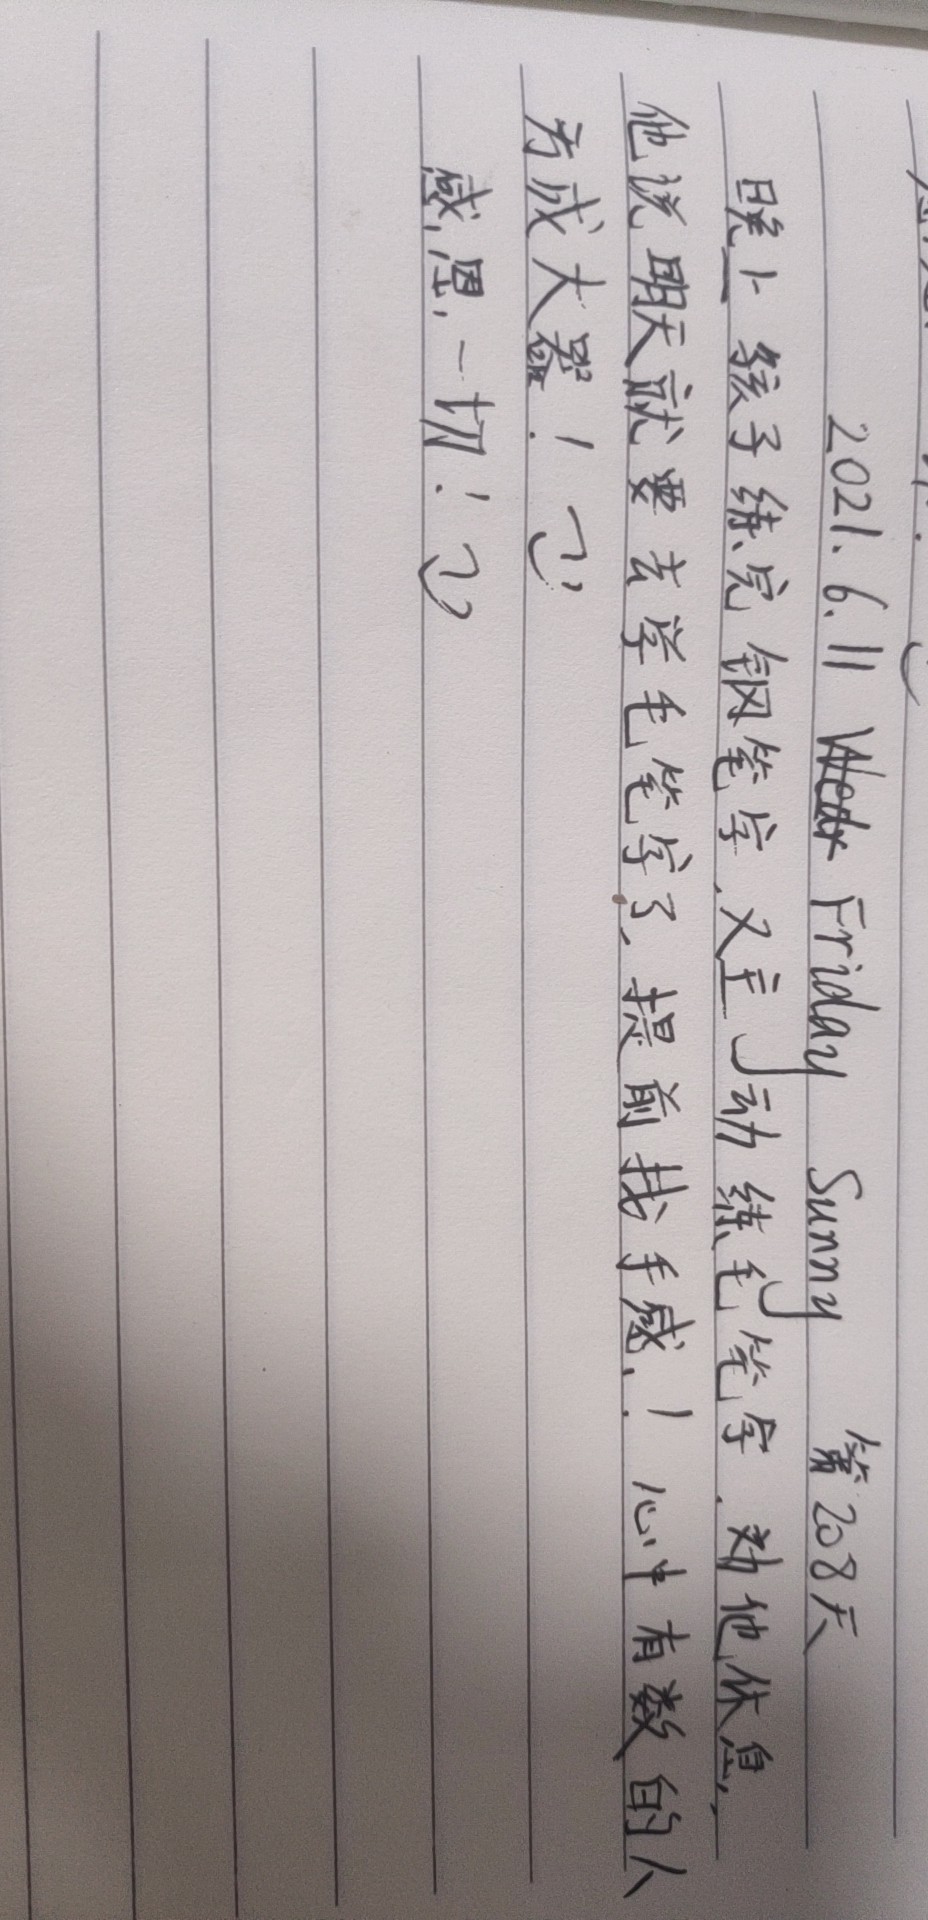 2021.6.11 Friday Sunny 第208天
晚上孩子练完钢笔字.又主动练毛笔字.劝他休息,
他说明天就要去学毛笔字了,提前找手感.!心中有数的人
方成大器.!
感恩,一切!